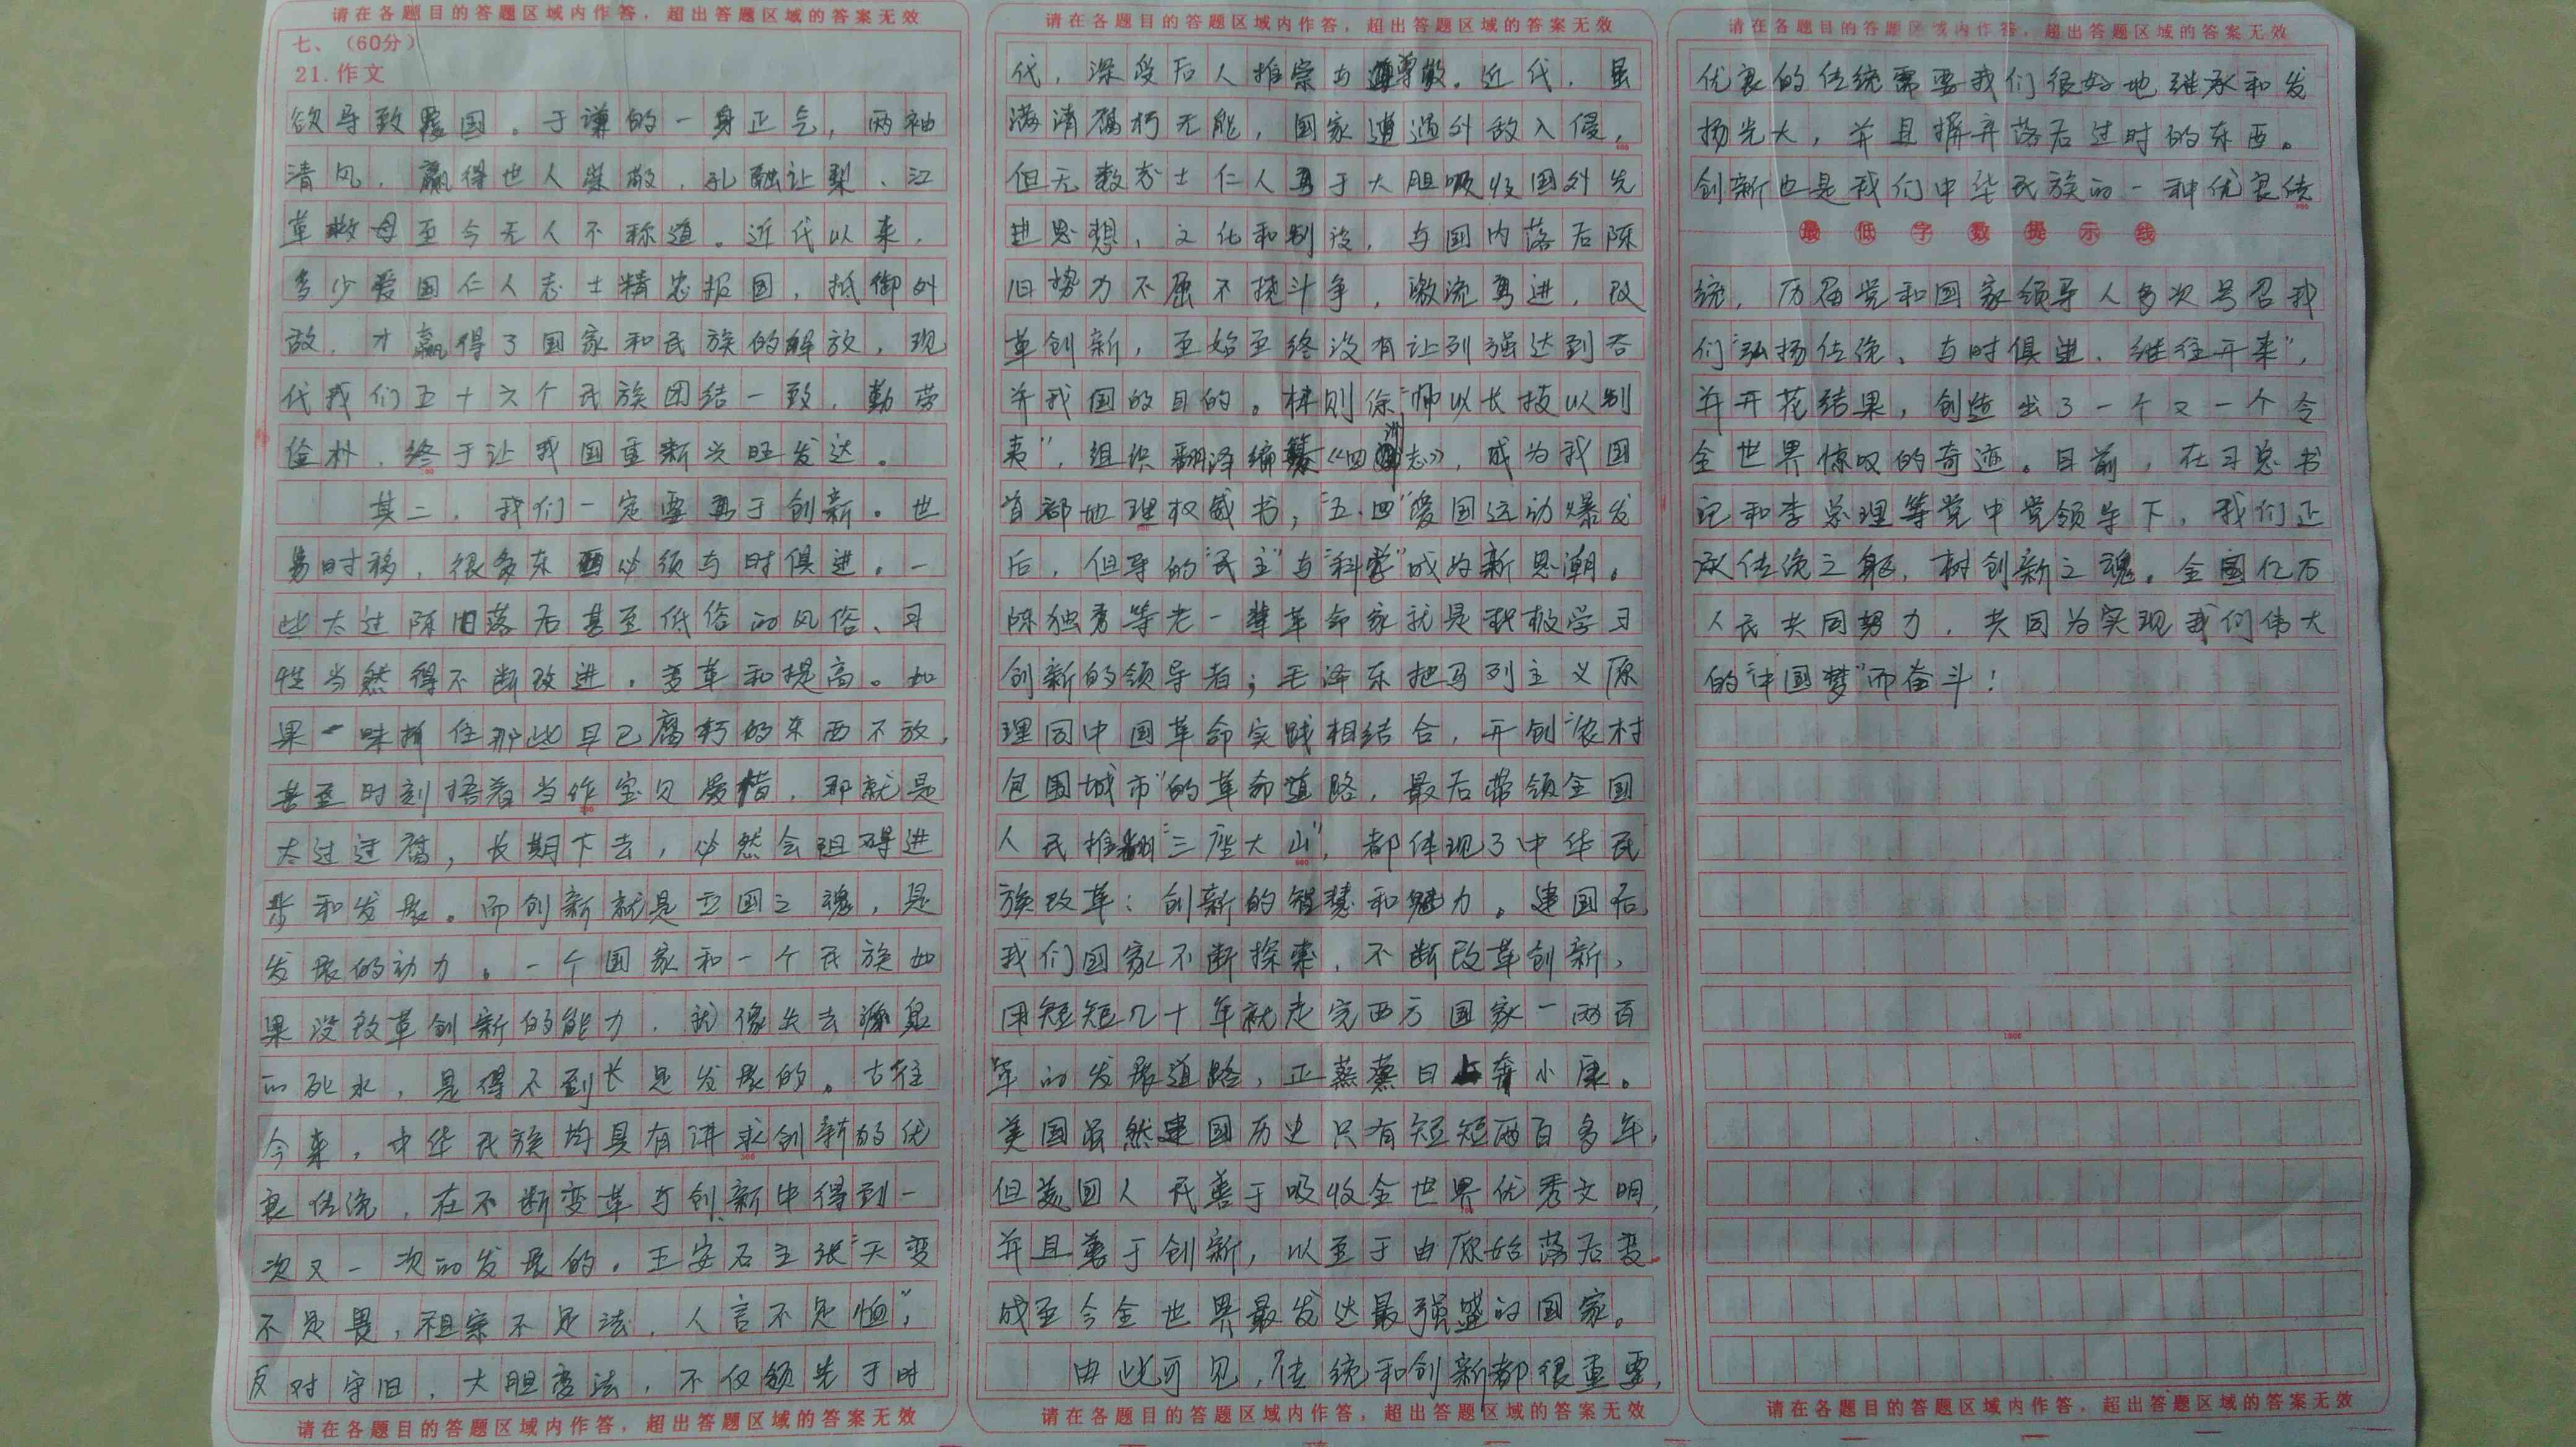 请在各题目的答题区域内作答，超出答题区域的答案无效
七、（60分）
21.作文
欲导致覆国。于谦的一身正气，两袖
清风，赢得世人崇敬，孔融让梨、江
革救母至今无人不称道。近代以来，
多少爱国仁人志士精忠报国，抵御外
敌，才赢得了国家和民族的解放，现
代我们五十六个民族团结一致，勤劳
俭朴，终于让我国重新兴旺发达。
其二，我们一定要勇于创新。世
易时移，很多东西必须与时俱进。一
些太过陈旧落后甚至低俗的风俗、习
性当然得不断改进，变革和提高。如
果一味抓住那些早已腐朽的东西不放，
甚至时刻捂着当作宝贝爱惜，那就是
太过迂腐，长期下去，必然会阻碍进
步和发展。而创新就是立国之魂，是
发展的动力。一个国家和一个民族如
果没改革创新的能力，就像失去源泉
的死水，是得不到长足发展的。古往
今来，中华民族均具有讲求创新的优
良传统，在不断变革与创新中得到一
次又一次的发展的。王安石主张“天变
不足畏，祖宗不足法，人言不足恤”，
反对守旧，大胆变法，不仅领先于时
请在各题目的答题区域内作答，超出答题区域的答案无效
请在各题目的答题区域内作答，超出答题区域的答案无效
代，深受后人推崇与尊敬。近代，虽
满清腐朽无能，国家遭遇外敌入侵，
但无数志士仁人勇于大胆吸收国外先
进思想，文化和制设，与国内落后陈
旧势力不屈不挠斗争，激流勇进，改
革创新，至始至终没有让列强达到吞
并我国的目的。林则徐“师以长技以制
夷”，组织翻译编纂《四洲志》，成为我国
首部地理权威书；“五.四”爱国运动爆发
后，但导的“民主”与“科学”成为新思潮。
陈独秀等老一辈革命家就是积极学习
创新的领导者；毛泽东把马列主义原
理同中国革命实践相结合，开创“农村
包围城市”的革命道路，最后带领全国
人民推翻“三座大山”，都体现了中华民
族改革：创新的智慧和魅力。建国后，
我们国家不断探索，不断改革创新，
用短短几十年就走完西方国家一两百
年的发展道路，正蒸蒸日上奔小康。
美国虽然建国历史只有短短两百多年，
但美国人民善于吸收全世界优秀文明，
并且善于创新，以至于由原始落后变
成至今全世界最发达最强盛的国家。
由此可见，传统和创新都很重要，
请在各题目的答题区域内作答，超出答题区域的答案无效
请在各题目的答题区域内作答，超出答题区域的答案无效
优良的传统需要我们很好地继承和发
扬光大，并且摒弃落后过时的东西。
创新也是我们中华民族的一种优良传
最低字数提示线
统，历届党和国家领导人多次号召我
们“弘扬传统、与时俱进、继往开来”，
并开花结果，创造出了一个又一个令
全世界惊叹的奇迹。目前，在习总书
记和李总理等党中党领导下，我们正
承传统之躯，树创新之魂。全国亿万
人民共同努力，共同为实现我们伟大
的“中国梦”而奋斗！
1000
请在各题目的答题区域内作答，超出答题区域的答案无效